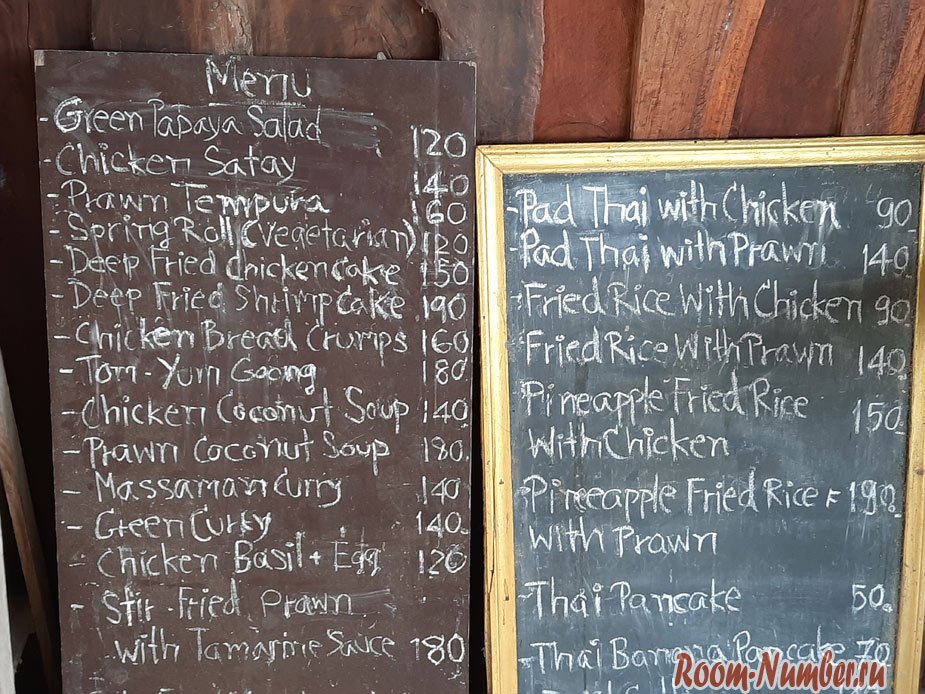 Menu
- Green Papaya Salad 120
- Chicken Satay 140
- Prawn Tempura 160
- Spring Roll (Vegetarian) 120
- Deep Fried Chicken Cake 150
- Deep Fried Shrimp Cake 190
- Chicken Bread Crumps 160
- Tom-Yum Goong 180
- Chicken Coconut Soup 140.
- Prawn Coconut Soup 180.
- Massaman Curry 140
- Green Curry 140.
- Chicken Basil + Egg 120
- Stir-Fried Prawn
with Tamarine Sauce 180
- Pad Thai with Chicken 90
- Pad Thai with Prawn 140.
- Fried Rice With Chicken 90.
- Fried Rice With Prawn 140.
- Pineapple Fried Rice 150.
With Chicken
- Pineeapple Fried Rice 190.
With Prawn
- Thai Pancake 50.
- Thai Banana Pancake 70
Room-Number.ru